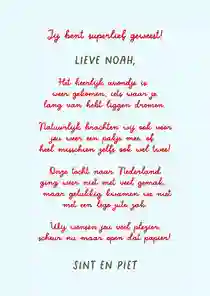 Jij bent superlief geweest!
LIEVE NOAH,
Het heerlijk avondje is
weer gekomen, iets waar je
lang van hebt liggen dromen.
Natuurlijk brachten wij ook voor
jou weer een pakje mee, of
heel misschien zelfs ook wel twee!
Onze tocht naar Nederland
ging weer niet met veel gemak,
maar gelukkig kwamen we niet
met een lege jute zak.
Wij wensen jou veel plezier,
scheur nu maar open dat papier!
SINT EN PIET